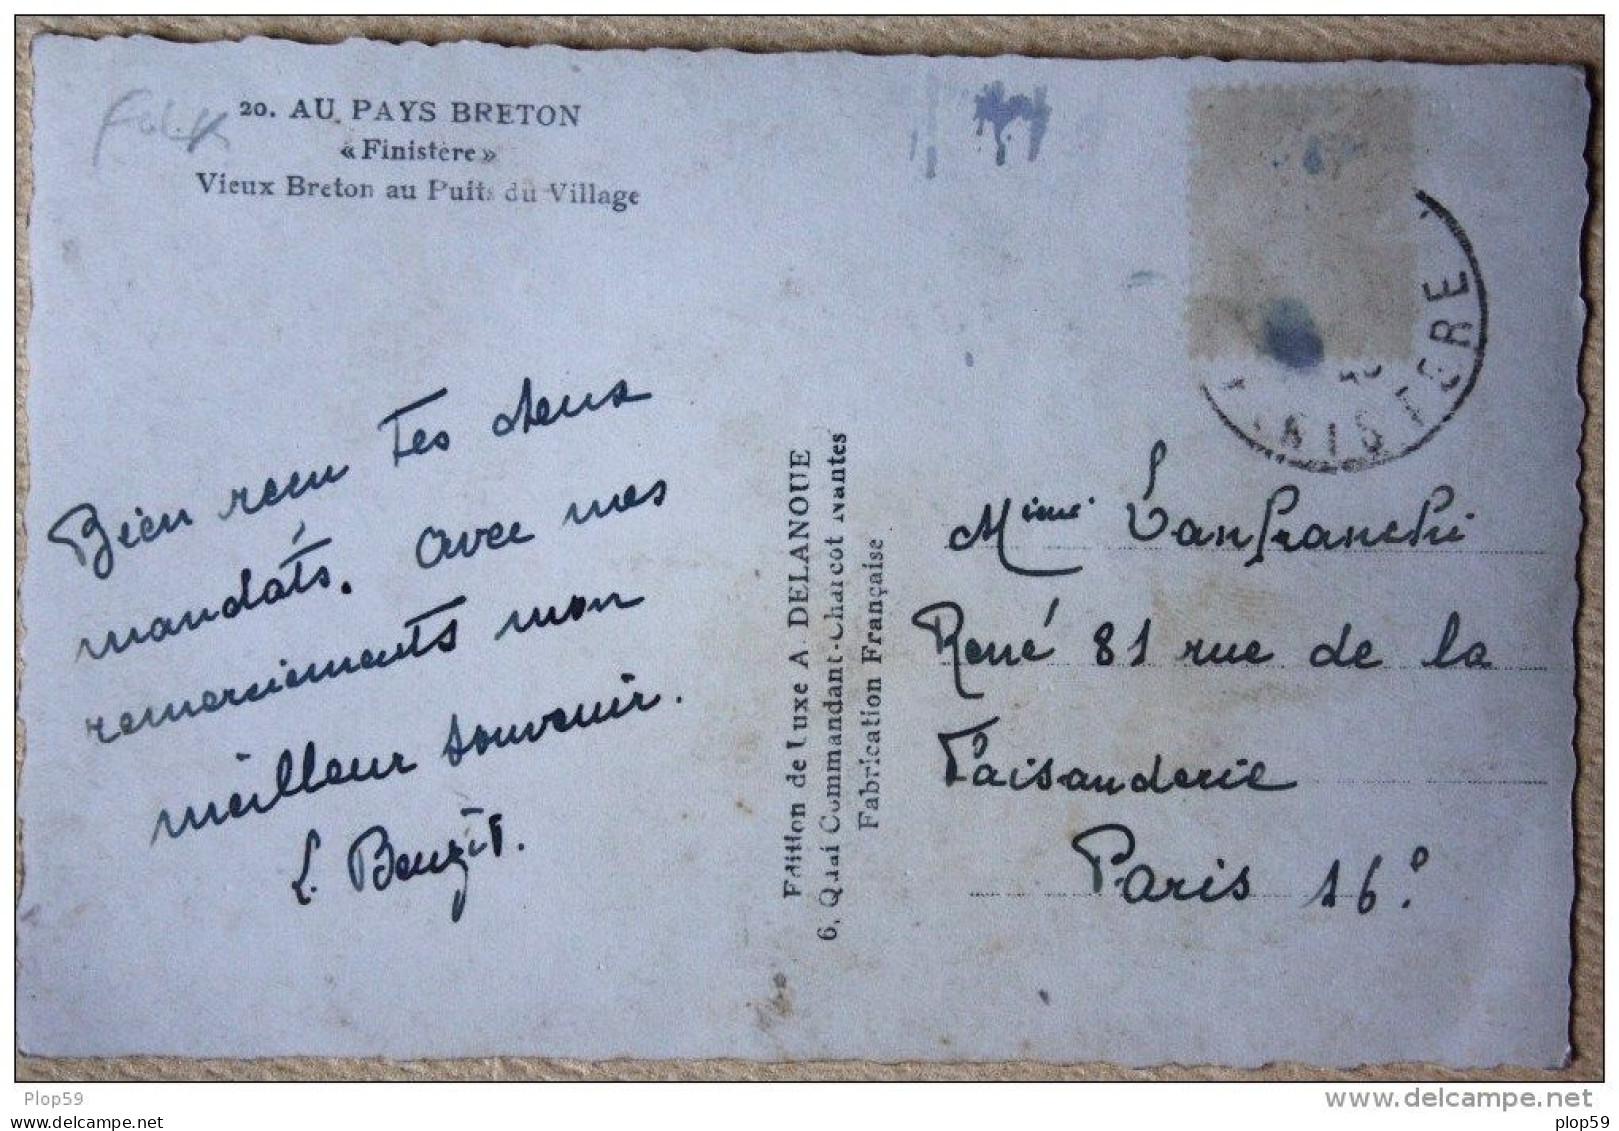 Folk
20. AU PAYS BRETON
«Finistère»
Vieux Breton au Puits du Village
Bien reçu tes deux
mandats. Avec mes
remerciements mon
meilleur souvenir.
Edition de Luxe A. DELANOUE
6, Quai Commandant-Charcot Nantes
Fabrication Française
FINISTERE
Lanfranchi
René 81 rue de la
Faisanderie
Paris 16e
Plop59
www.delcampe.net
plop59